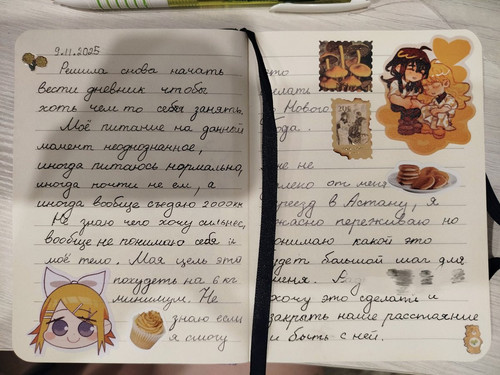 9.11.2025
Решила снова начать
вести дневник чтобы
хоть чем то себя занять.
Моё питание на данный
момент неоднозначное,
иногда питаюсь нормально,
иногда почти не ем, а
иногда вообще съедаю 2000кк
Не знаю чего хочу сильнее,
вообще не понимаю себя и
моё тело. Моя цель это
похудеть на 6 кг
минимум. Не
знаю если
я смогу
это
делать
Нового
года.
не
от меня
переезд в Астану, я
ужасно переживаю но
понимаю какой это
будет большой шаг для
меня. Я
хочу это сделать и
закрыть наше расстояние
и быть с ней.